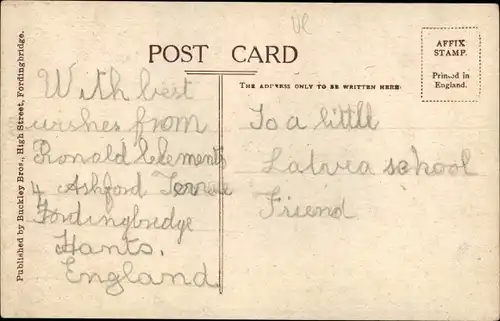 ve
POST CARD
AFFIX
STAMP.
Printed in
England.
THE ADDRESS ONLY TO BE WRITTEN HERE
With best
wishes from
Ronald Clements
4 Ashford Terrace
Fordingbridge
Hants.
England
To a little
Latvia school
Friend
Published by Buckley Bros., High Street, Fordingbridge.